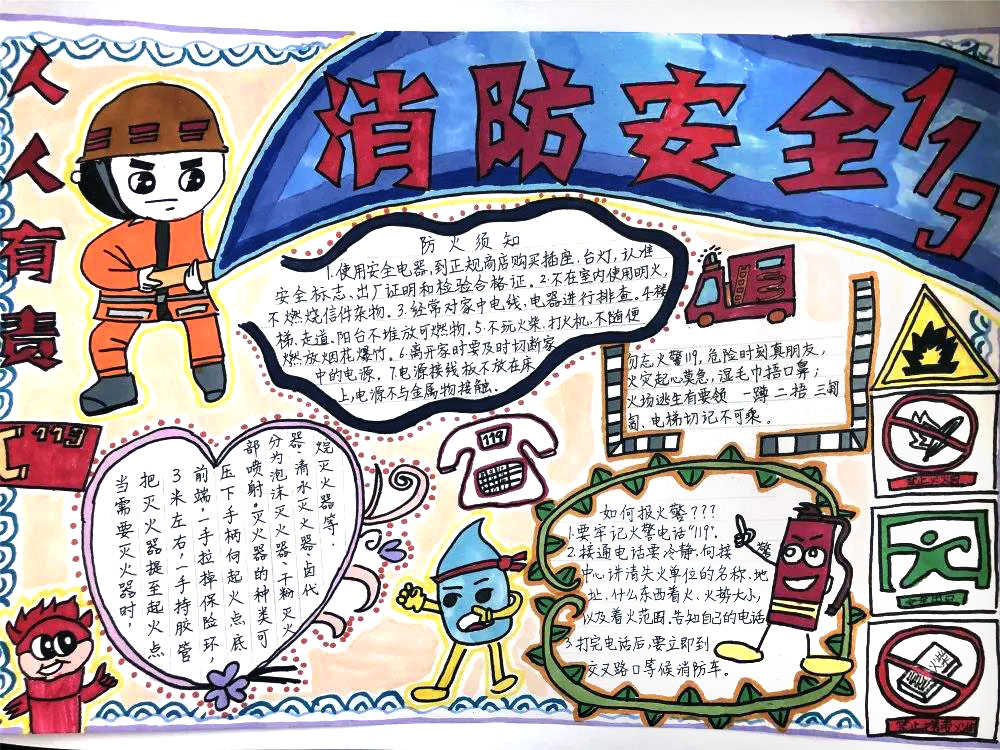 消防安全119
人人有责
防火须知
1.使用安全电器,到正规商店购买插座、台灯,认准
安全标志、出厂证明和检验合格证。2.不在室内使用明火,
不燃烧信件杂物。3.经常对家中电线、电器进行排查。4.楼
梯、走道、阳台不堆放可燃物。5.不玩火柴、打火机,不随便
燃放烟花爆竹。6.离开家时要及时切断家
中的电源。7.电源接线板不放在床
上,电源不与金属物接触。
勿忘火警119,危险时刻真朋友,
火灾起心莫急,湿毛巾捂口鼻;
火场逃生有要领 一蹲二捂三匍
匐、电梯切记不可乘。
119
119
当需要灭火器时,
把灭火器提至起火点
3米左右,一手持胶管
前端,一手拉掉保险环,
压下手柄向起火点底
部喷射。灭火器的种类可
分为泡沫灭火器、干粉灭火
器、清水灭火器、卤代
烷灭火器等.
如何报火警???
1.要牢记火警电话“119”.
2.接通电话要冷静.向接警
中心讲清失火单位的名称.地
址、什么东西着火、火势大小,
以及着火范围.告知自己的电话
3.打完电话后,要立即到
交叉路口等候消防车。